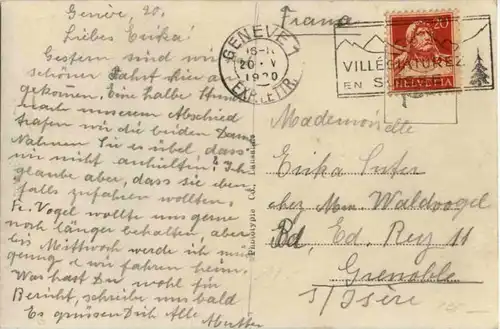 Genève, 20.
Liebes Erika!
Gestern sind wir
schöner Fahrt hier an
gekommen. Eine halbe Stunde
nach unserem Abschied
trafen wir die beiden Damen
Nahmen Sie es übel dass
wir nicht anhielten? Ich
glaube aber, dass sie eben
falls zufahren wollten.
Fr. Vogel wollte uns gerne
noch länger behalten, aber
bis Mittwoch werde ich
genug & wir fahren heim.
Was hast Du wohl für
Bericht, schreibe uns bald
Es grüssen Dich Alle
Mutter
France
GENÈVE 1
20 V
1920
EXP. LETTR.
VILLÉGIATUREZ
EN
20
HELVETIA
Phototypie Co., Lausanne
Mademoiselle
Erika Suter
chez Mme Waldvogel
Bd. Ed. Rey 11
Grenoble
s/Isère